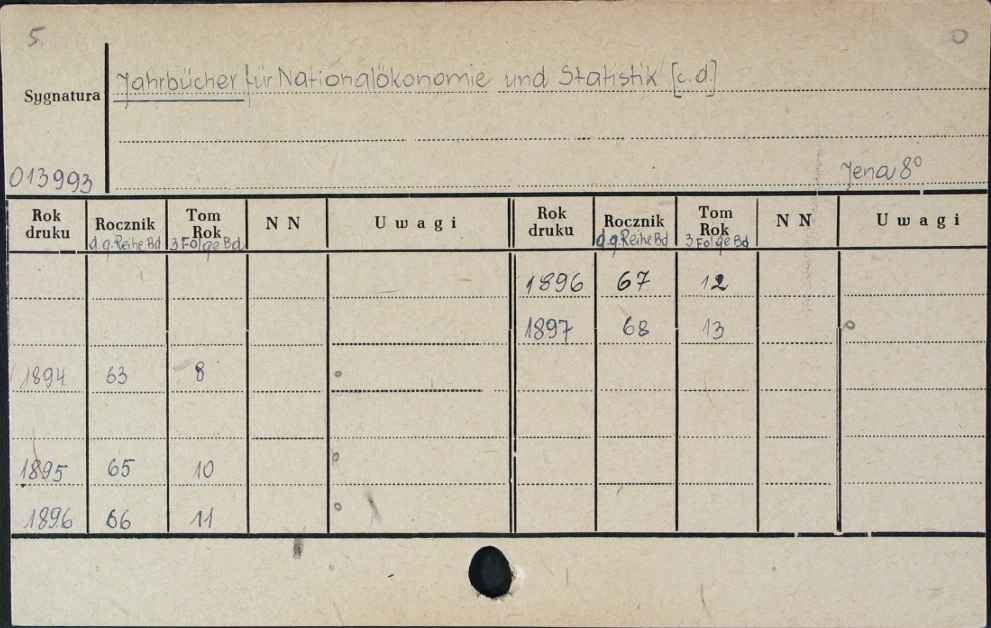 5.
Jahrbücher für Nationalökonomie und Statistik [c.d.]
Sygnatura
013993
Jena 8°
Rok druku Rocznik d.g. Reihe Bd Tom Rok 3 Folge Bd N N Uwagi Rok druku Rocznik d.g. Reihe Bd Tom Rok 3 Folge Bd N N Uwagi
1896 67 12
1897 68 13
1894 63 8
1895 65 10
1896 66 11